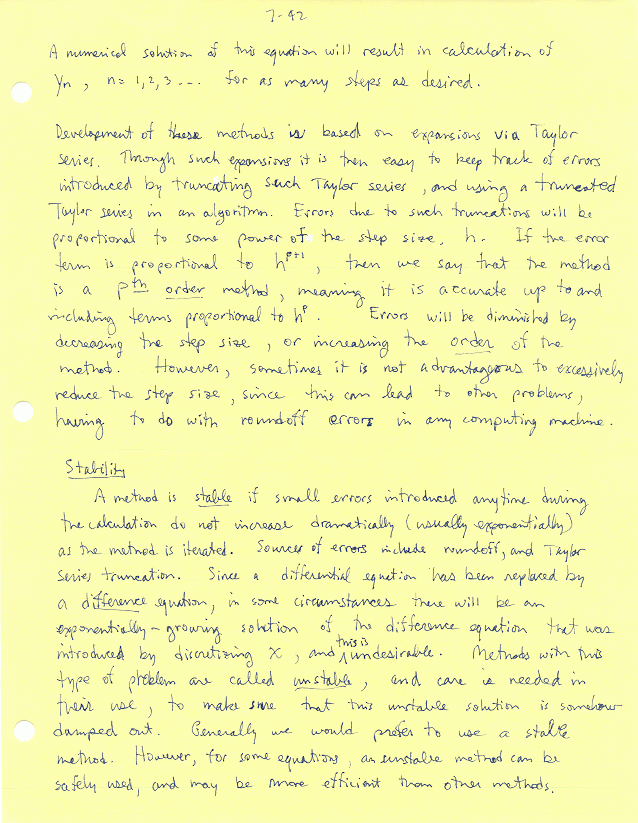 7-42
A numerical solution of this equation will result in calculation of
yn , n = 1, 2, 3 ... for as many steps as desired.
Development of these methods is based on expansions via Taylor
series. Through such expansions it is then easy to keep track of errors
introduced by truncating such Taylor series, and using a truncated
Taylor series in an algorithm. Errors due to such truncations will be
proportional to some power of the step size, h. If the error
term is proportional to h^p+1, then we say that the method
is a pth order method, meaning it is accurate up to and
including terms proportional to h^p. Errors will be diminished by
decreasing the step size, or increasing the order of the
method. However, sometimes it is not advantageous to excessively
reduce the step size, since this can lead to other problems,
having to do with roundoff errors in any computing machine.
Stability
A method is stable if small errors introduced anytime during
the calculation do not increase dramatically (usually exponentially)
as the method is iterated. Sources of errors include roundoff, and Taylor
series truncation. Since a differential equation has been replaced by
a difference equation, in some circumstances there will be an
exponentially-growing solution of the difference equation that was
introduced by discretizing x, and this is undesirable. Methods with this
type of problem are called unstable, and care is needed in
their use, to make sure that this unstable solution is somehow
damped out. Generally we would prefer to use a stable
method. However, for some equations, an unstable method can be
safely used, and may be more efficient than other methods.